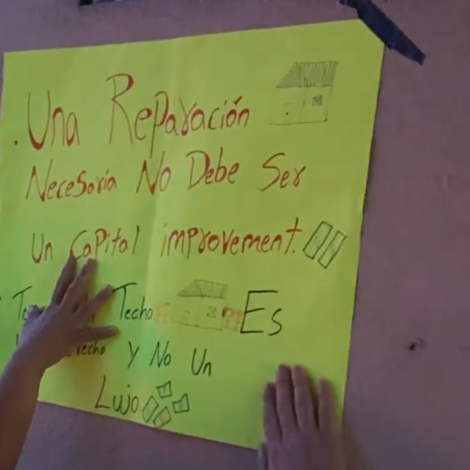 . Una Reparación
Necesaria No Debe Ser
Un Capital improvement.
Techo Es
Y No Un
Lujo